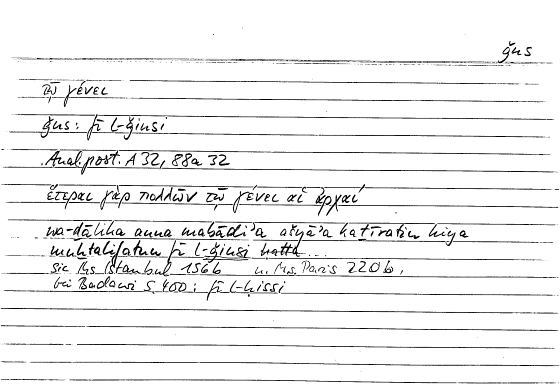 ǧns
τῷ γένει
ǧns: fī l-ǧinsi
Anal. post. A 32, 88a 32
ἕτεραι γὰρ πολλῶν τῷ γένει αἱ ἀρχαί
wa-ḏālika anna mabādiʾa ašyāʾa kaṯīratin hiya
muḫtalifatun fī l-ǧinsi ḥattā ...
sic Ms Istanbul 156b u. Ms. Paris 220b,
bei Badawi S. 400: fī l-ḥissi